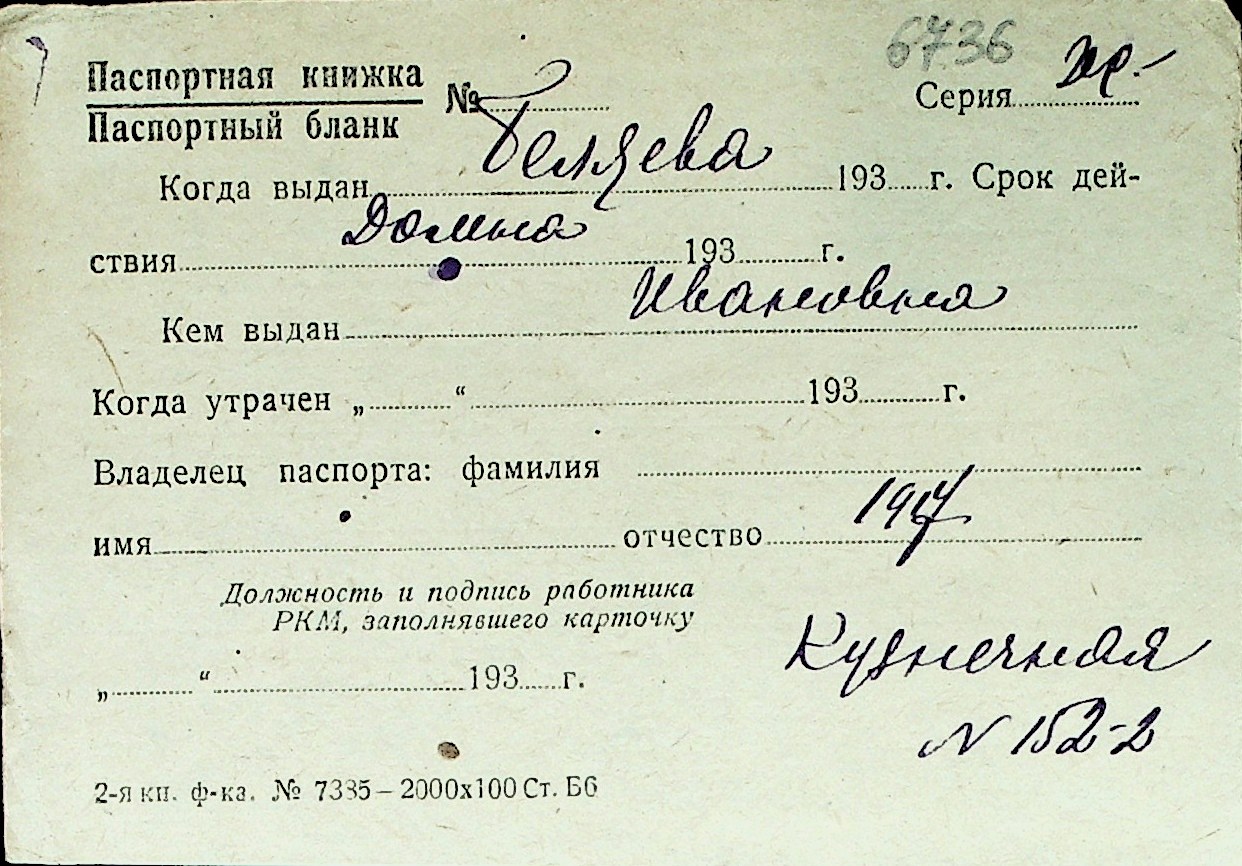 6736
Паспортная книжка
Паспортный бланк
№ Серия
Беляева
Когда выдан 193 г. Срок дей-
Домна
ствия 193 г.
Ивановна
Кем выдан
Когда утрачен „ “ 193 г.
Владелец паспорта: фамилия
1917
имя отчество
Должность и подпись работника
РКМ, заполнявшего карточку
Кузнечная
„ “ 193 г.
N 152-2
2-я кн. ф-ка. № 7335–2000х100 Ст. Б6